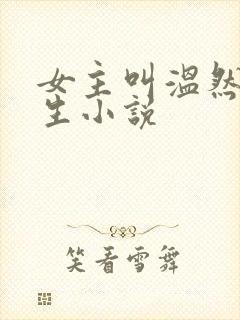 女主叫温然
生小说
笑看雪舞